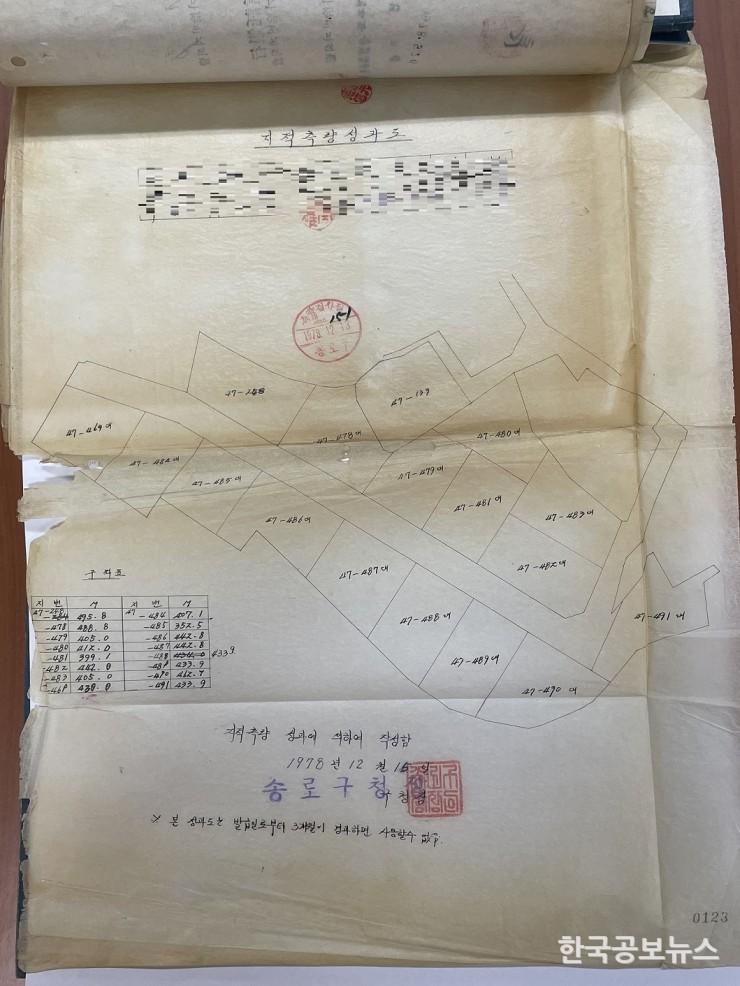 지적측량성과도
151
1978.12.13
종로구
47-248
47-139
47-469대
47-478대
47-480대
47-484대
47-485대
47-479대
47-481대
47-483대
47-486대
47-487대
47-482대
47-488대
47-491대
47-489대
47-490대
지번 M 지번 M
47-248 495.8 47-484 407.1
-478 488.8 -485 352.5
-479 405.0 -486 442.8
-480 412.0 -487 442.8
-481 399.1 -488 433.9
-482 -489 433.9
-483 405.0 -490 462.7
-469 -491 433.9
지적측량 성과에 의하여 작성함
1978년 12월 15일
종로구청장
※ 본 성과도는 발급일로부터 3개월이 경과하면 사용할수 없음.
0123
한국공보뉴스